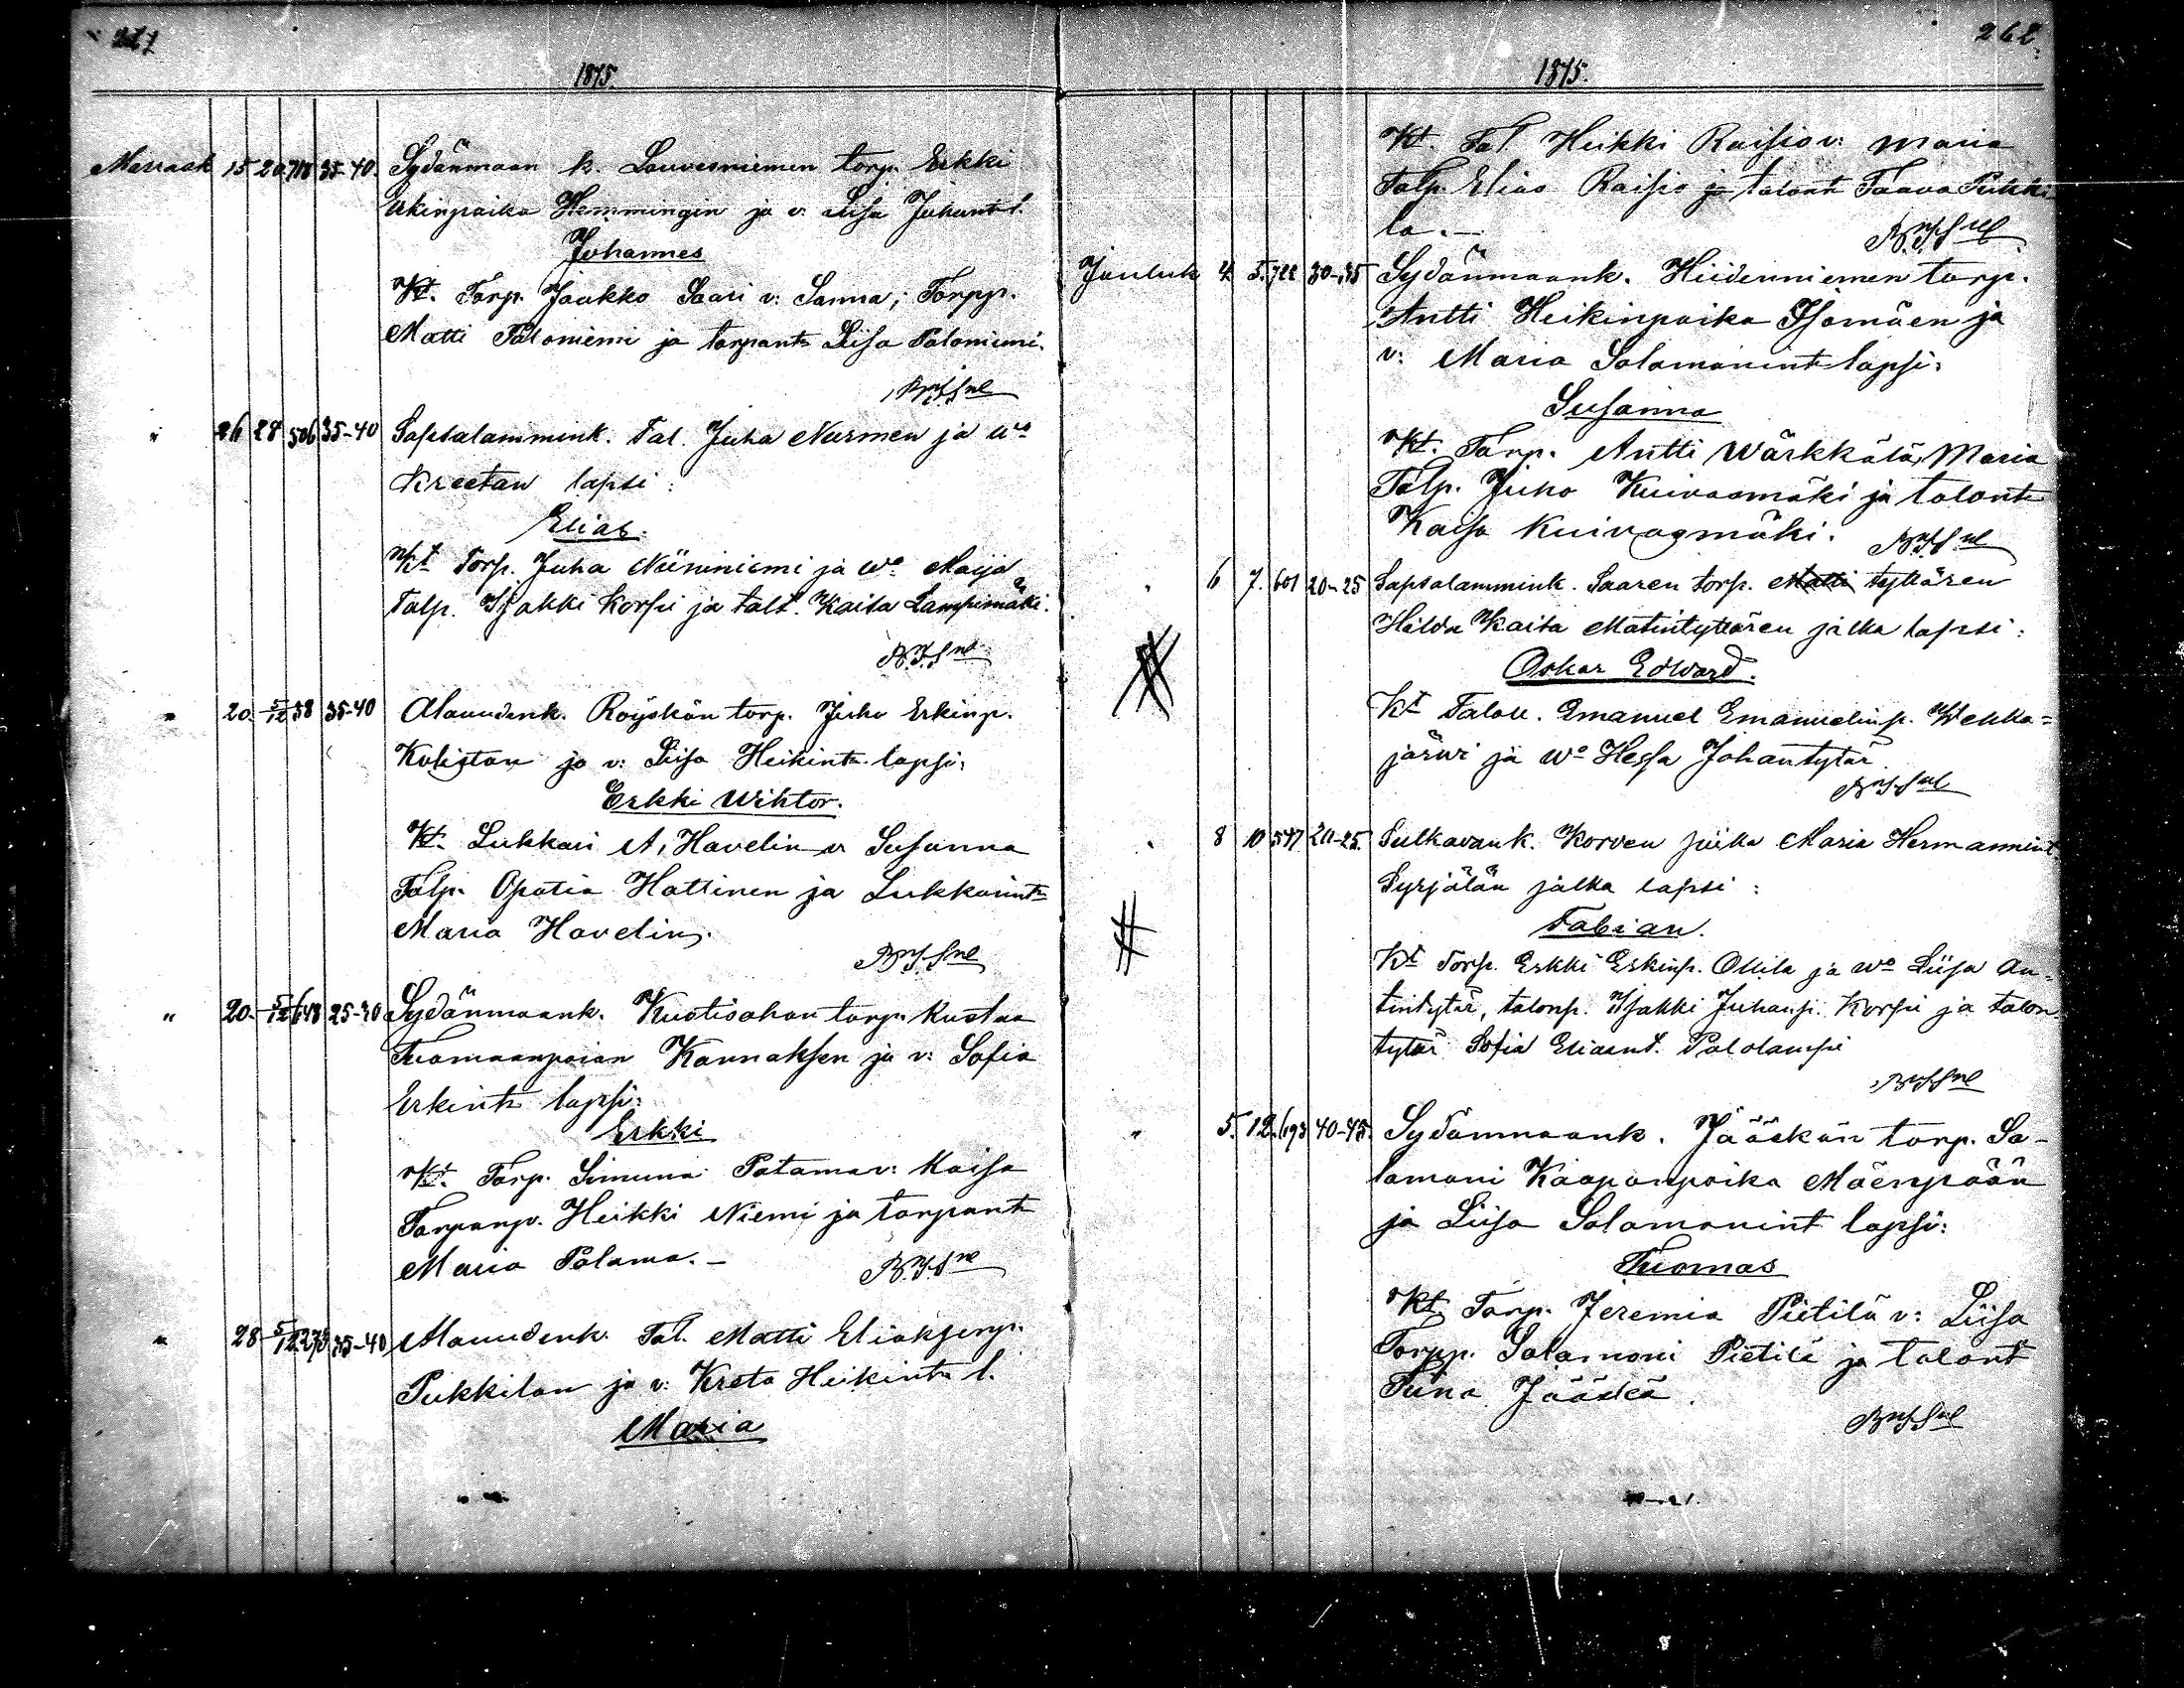 261
1875.
Marrask 15 20 718 35-40. Sydänmaan k. Louvesniemen torp. Erkki
Erkinpaika Hemmingin ja v: Liisa Juhant l.
Johannes
Kt. Torp. Jaakko Saari v: Sanna; Torpp.
Matti Paloniemi ja torpant. Liisa Paloniemi.
" 26 28 506 35-40 Sapsalammink. Tal. Juha Nurmen ja wo
Kreetan lapsi:
Elias.
Kt Torp. Juha Niininiemi ja wo Maija
Talp. Isakki Korpi ja talt. Kaisa Lampimäki.
" 20. 5/12 58 35-40 Alavudenk. Röyskön torp. Juho Erkinp.
ja v: Liisa Heikint. lapsi:
Erkki Wihtor.
Kt. Lukkari A. Havelin v: Susanna
Talp. Opatia Hattinen ja Lukkarint.
Maria Havelin.
" 20. 5/12 648 25-30 Sydänmaank. Kustisahon torp. Kustaa
Tuomaanpoian Kannaksen ja v: Sofia
Erkint. lapsi:
Erkki
Kt. Torp. Simuna Patama v: Kaisa
Torpanp. Heikki Niemi ja torpant
Maria Palama. -
" 28 5/12 273 35-40 Alavudenk. Tal. Matti Eliaksenp.
Pukkilan ja v: Kreta Heikint. l.
Maria
262.
1875.
Kt. Tal. Heikki Raisio v: Maria
Talp. Elias Raisio ja talont Taava Pukki
la. -
Jouluk 4 5. 722 30-35 Sydänmaank. Hiidenniemen torp.
Antti Heikinpoika Isomäen ja
v: Maria Salamonint lapsi:
Susanna
Kt. Torp. Antti Wärkkälä, Maria
Talp. Juho Kuivasmäki ja talont
Kaisa Kuivasmäki.
" 6 7. 601 20-25 Sapsalammink. Saaren torp. Matti tyttären
Hilda Kaisa Matintyttären jalka lapsi:
Oskar Edward.
Kt Talol. Emanuel Emanuelinp. Wehka=
järwi ja wo Hessa Johantytär.
" 8 10 547 20-25. Sulkavank. Korven piika Maria Hermannint
Syrjälän jalka lapsi:
Fabian.
Kt Torp. Erkki Erkinp. Ollila ja wo Liisa An-
tintytär, talonp. Isakki Juhanp. Korpi ja talon
tytär Sofia Eliaent. Palolampi
" 5. 12. 693 40-45. Sydänmaank. Jääskän torp. Sa-
lamoni Kaaponpoika Mäenpään
ja Liisa Salamonint lapsi:
Tuomas
Kt. Torp. Jeremia Pietilä v: Liisa
Torpp. Salamoni Pietilä ja talont
Tiina Jääskä.